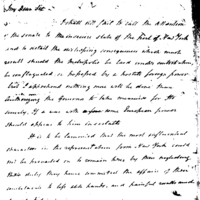 My Dear Sir
I shall not fail to call the attention
of the Senate to the insecure state of the Port of New York
and to detail the distressing consequences which must
result should the Metropolis be laid under contribution,
be conflagrated or possessed by a hostile foreign power
but I apprehend nothing more will be done than
Authorizing the Governor to take measures for the
security. If a war with some European power
should appear to him inevitable
It is to be lamented that the most influential
characters in the representation from New York could
not be prevailed on to remain here by their neglecting
their duty they have committed the affairs of their
constituents to life able hands, and painful